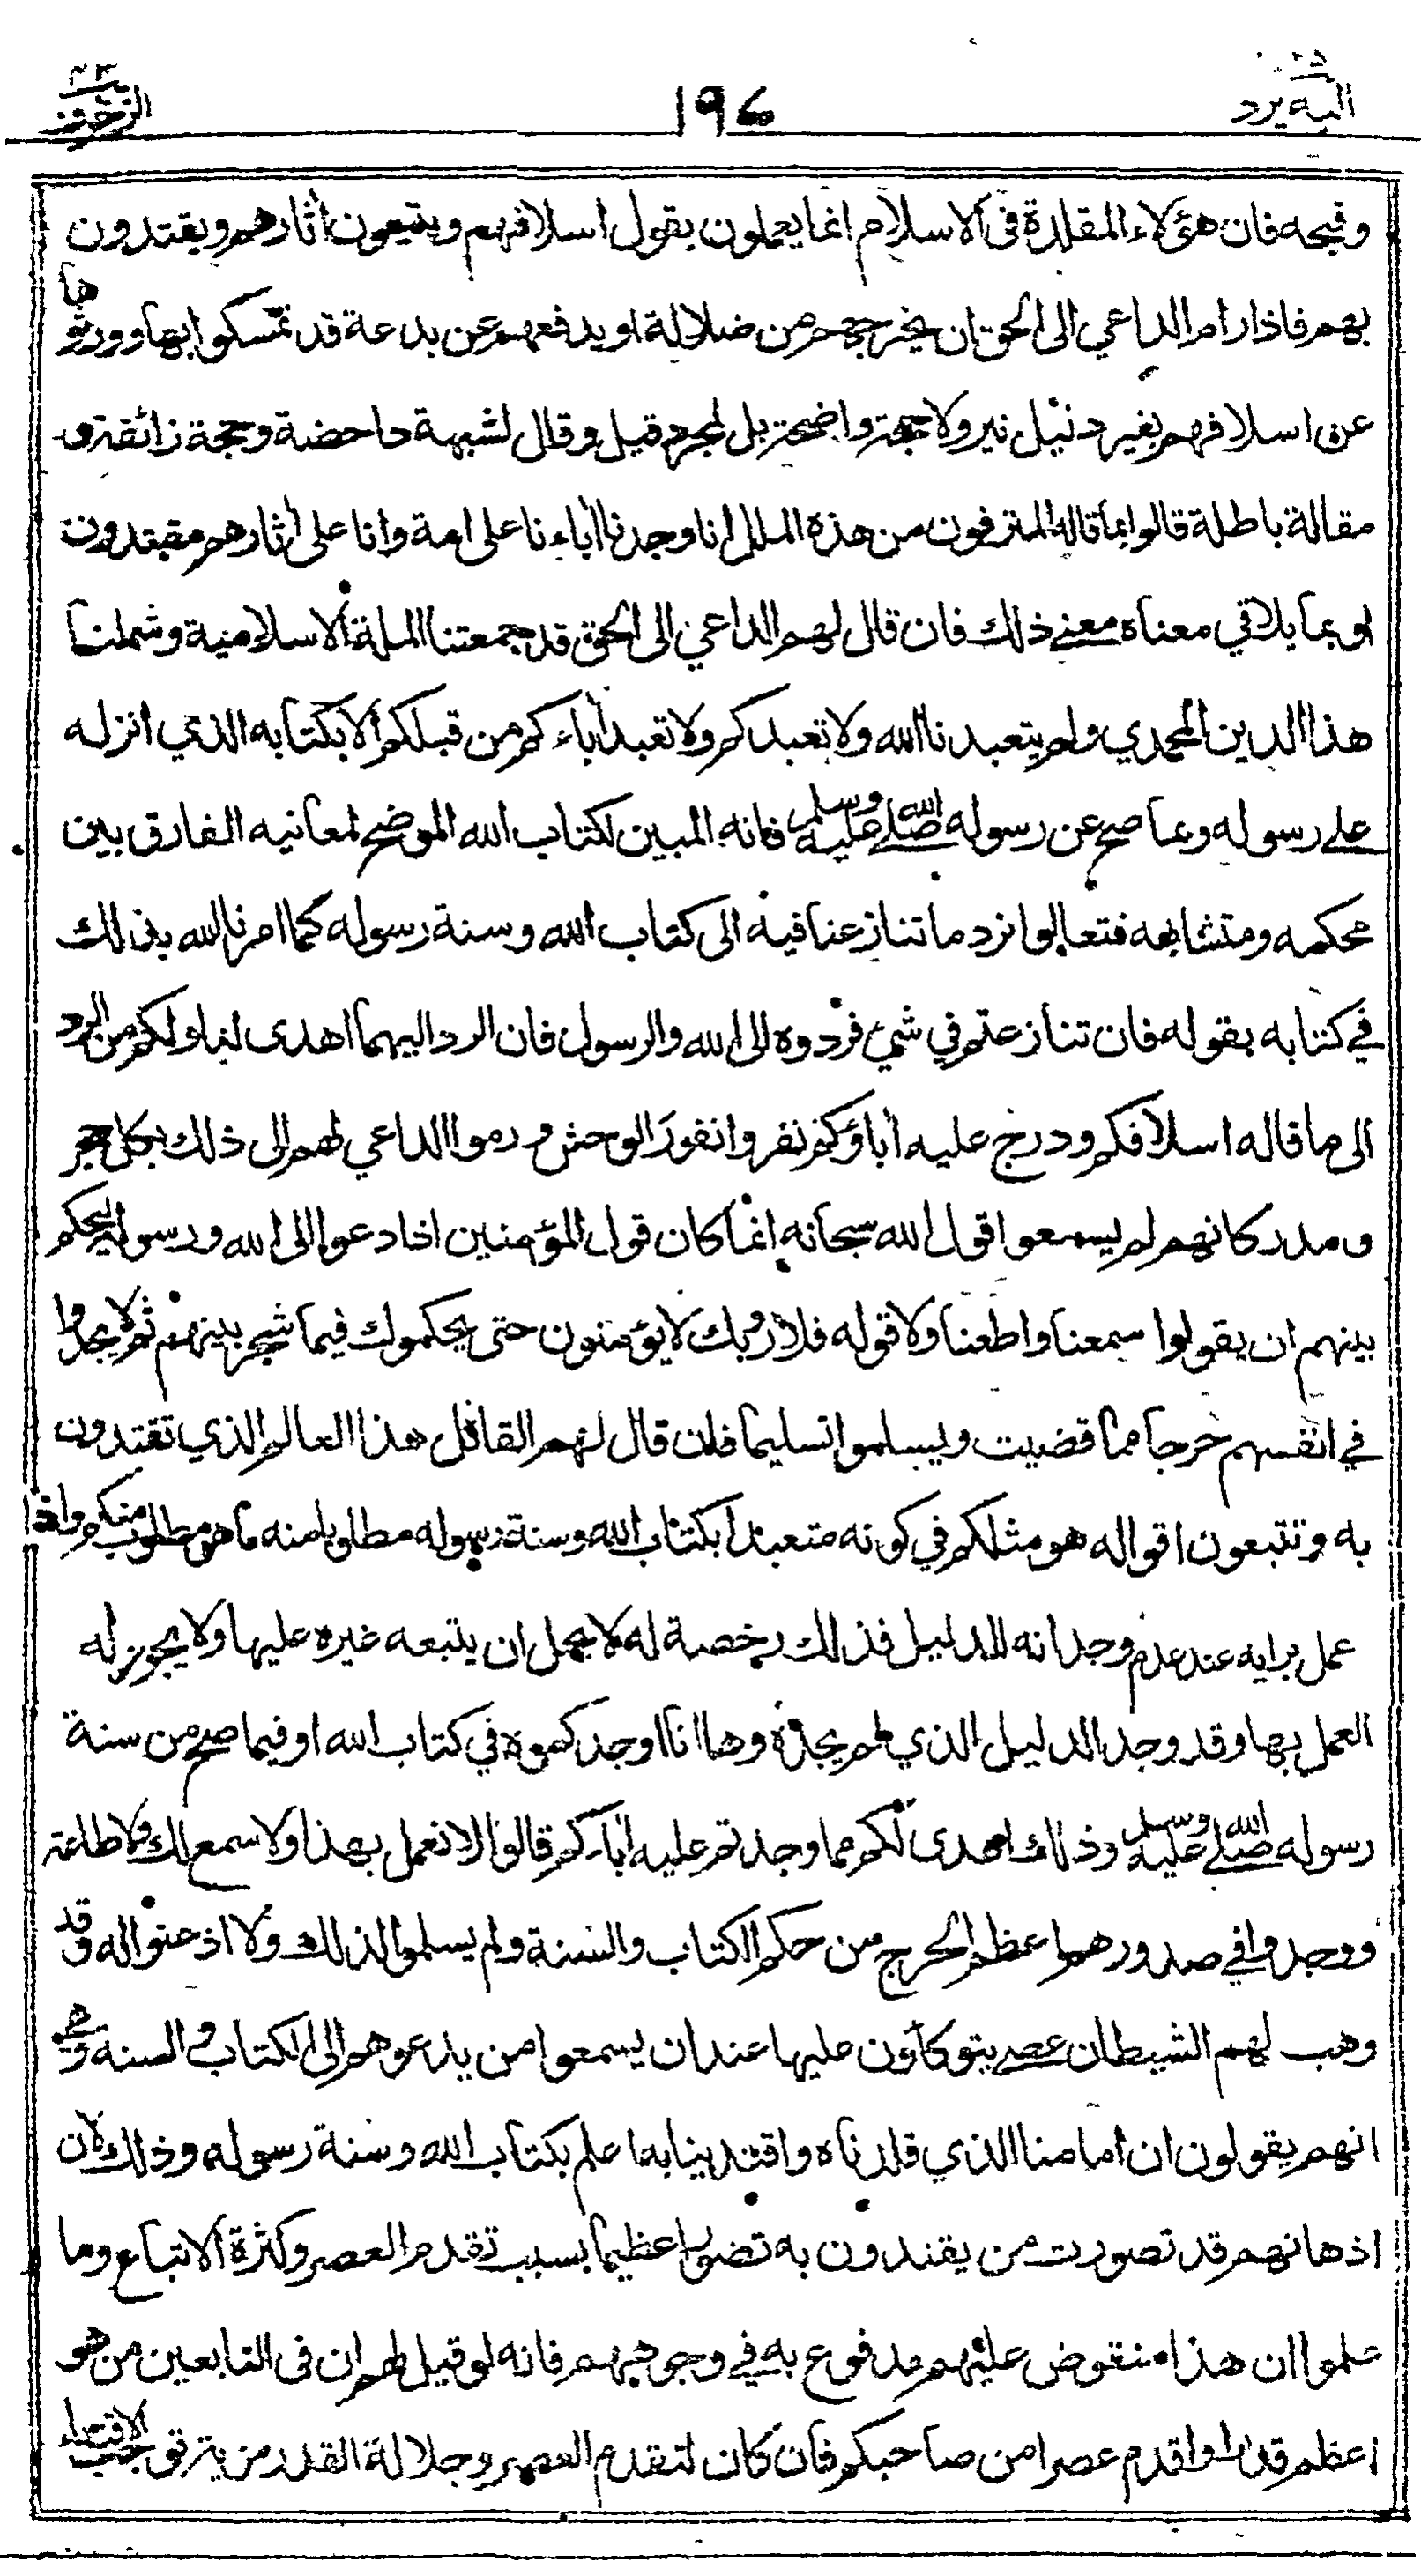 اليه يرد ٢٥
١٩٦
الزخرف ٤٣
وقبحه فان هؤلاء المقلدة فى الاسلام انما يعملون بقول اسلافهم ويتبعون اثارهم ويقتدون
بهم فاذا رام الداعي الى الحق ان يخرجهم من ضلالة او يدفعهم عن بدعة قد تمسكوا بها وورثوها
عن اسلافهم بغير دليل نير ولا حجة واضحة بل لمجرد قيل وقال لشبهة داحضة وحجة زائفة و
مقالة باطلة قالوا بما قاله المترفون من هذه الملل انا وجدنا اباءنا على امة وانا على اثارهم مقتدون
او بما يلاقي معناه معنے ذلك فان قال لهم الداعي الى الحق قد جمعتنا الملة الاسلامية وشملنا
هذا الدين المحمدي ولم يتعبدنا الله ولا تعبدكم ولا تعبد اباءكم من قبلكم الا بكتابه الذي انزله
علے رسوله وبما صح عن رسوله صلے الله عليه وسلم فانه المبين لكتاب الله الموضح لمعانيه الفارق بين
محكمه ومتشابهه فتعالوا نرد ما تنازعنا فيه الى كتاب الله وسنة رسوله كما امرنا الله بذلك
في كتابه بقوله فان تنازعتم في شئ فردوه الى الله والرسول فان الرد اليهما اهدى لنا ولكم من الرد
الى ما قاله اسلافكم ودرج عليه اباؤكم نفروا نفور الوحش ورموا الداعي لهم الى ذلك بكل حجر
ومدر كانهم لم يسمعوا قول الله سبحانه انما كان قول المؤمنين اذا دعوا الى الله ورسوله ليحكم
بينهم ان يقولوا سمعنا واطعنا ولا قوله فلا وربك لا يؤمنون حتى يحكموك فيما شجر بينهم ثم لا يجدوا
في انفسهم حرجا مما قضيت ويسلموا تسليما فان قال لهم القائل هذا العالم الذي تقتدون
به وتتبعون اقواله هو مثلكم في كونه متعبدا بكتاب الله وسنة رسوله مطلوبا منه ما هو مطلوب منكم واذا
عمل برايه عند عدم وجدانه للدليل فذلك رخصة له لا يحل ان يتبعه غيره عليها ولا يجوز له
العمل بها وقد وجد الدليل الذي لم يجده وها انا اوجدكموه في كتاب الله او فيما صح من سنة
رسوله صلے الله عليه وسلم وذلك اهدى لكم مما وجدتم عليه اباءكم قالوا لا نعمل بهذا ولا سمع لك ولا طاعة
ووجدوا في صدورهم اعظم الحرج من حكم الكتاب والسنة ولم يسلموا لذلك ولا اذعنوا له وقد
وهب لهم الشيطان عصے يتوكأون عليها عند ان يسمعوا من يدعوهم الى الكتاب والسنة وهے
انهم يقولون ان امامنا الذي قلدناه واقتدينا به اعلم بكتاب الله وسنة رسوله وذلك لان
اذهانهم قد تصورت من يقتدون به تصورا عظيما بسبب تقدم العصر وكثرة الاتباع وما
علموا ان هذا منقوض عليهم مدفوع به في وجوههم فانه لو قيل لهم ان فى التابعين من هو
اعظم قدرا واقدم عصرا من صاحبكم فان كان لتقدم العصر وجلالة القدر مزية توجب الاقتداء